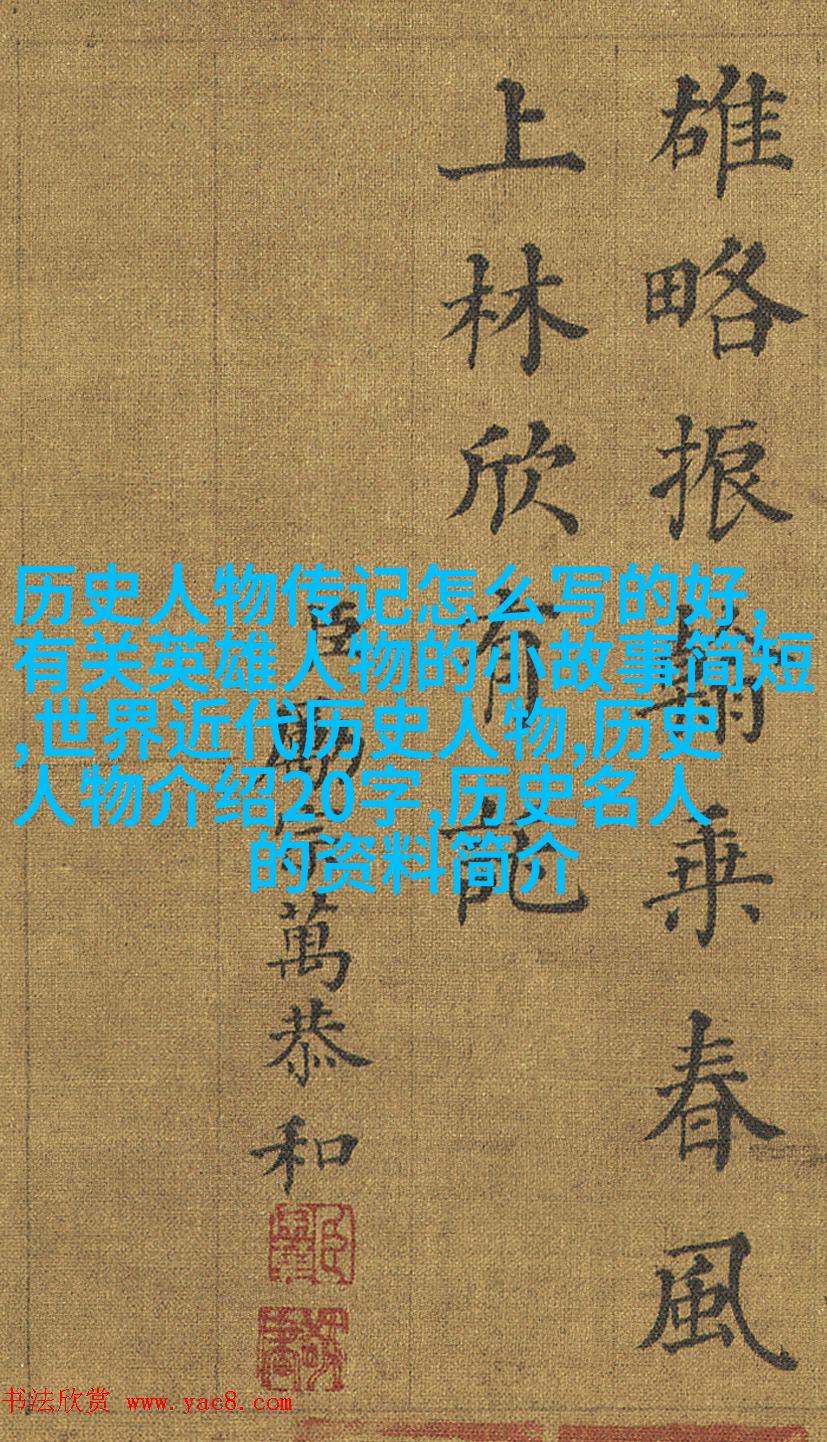 雄略振翰乗春風
上林欣有託
臣勵宗萬恭和
历史人物传记怎么写的好,
有关英雄人物的小故事简短
,世界近代历史人物,历史
人物介绍20字,历史名人
的资料简介
书法欣赏 www.yac8.com